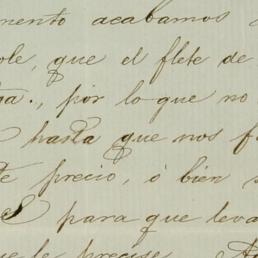 mento acabamos
ole, que el flete de
ga., por lo que no
hasta que nos f
te precio, ó bien s
es para que leva
ue le precise